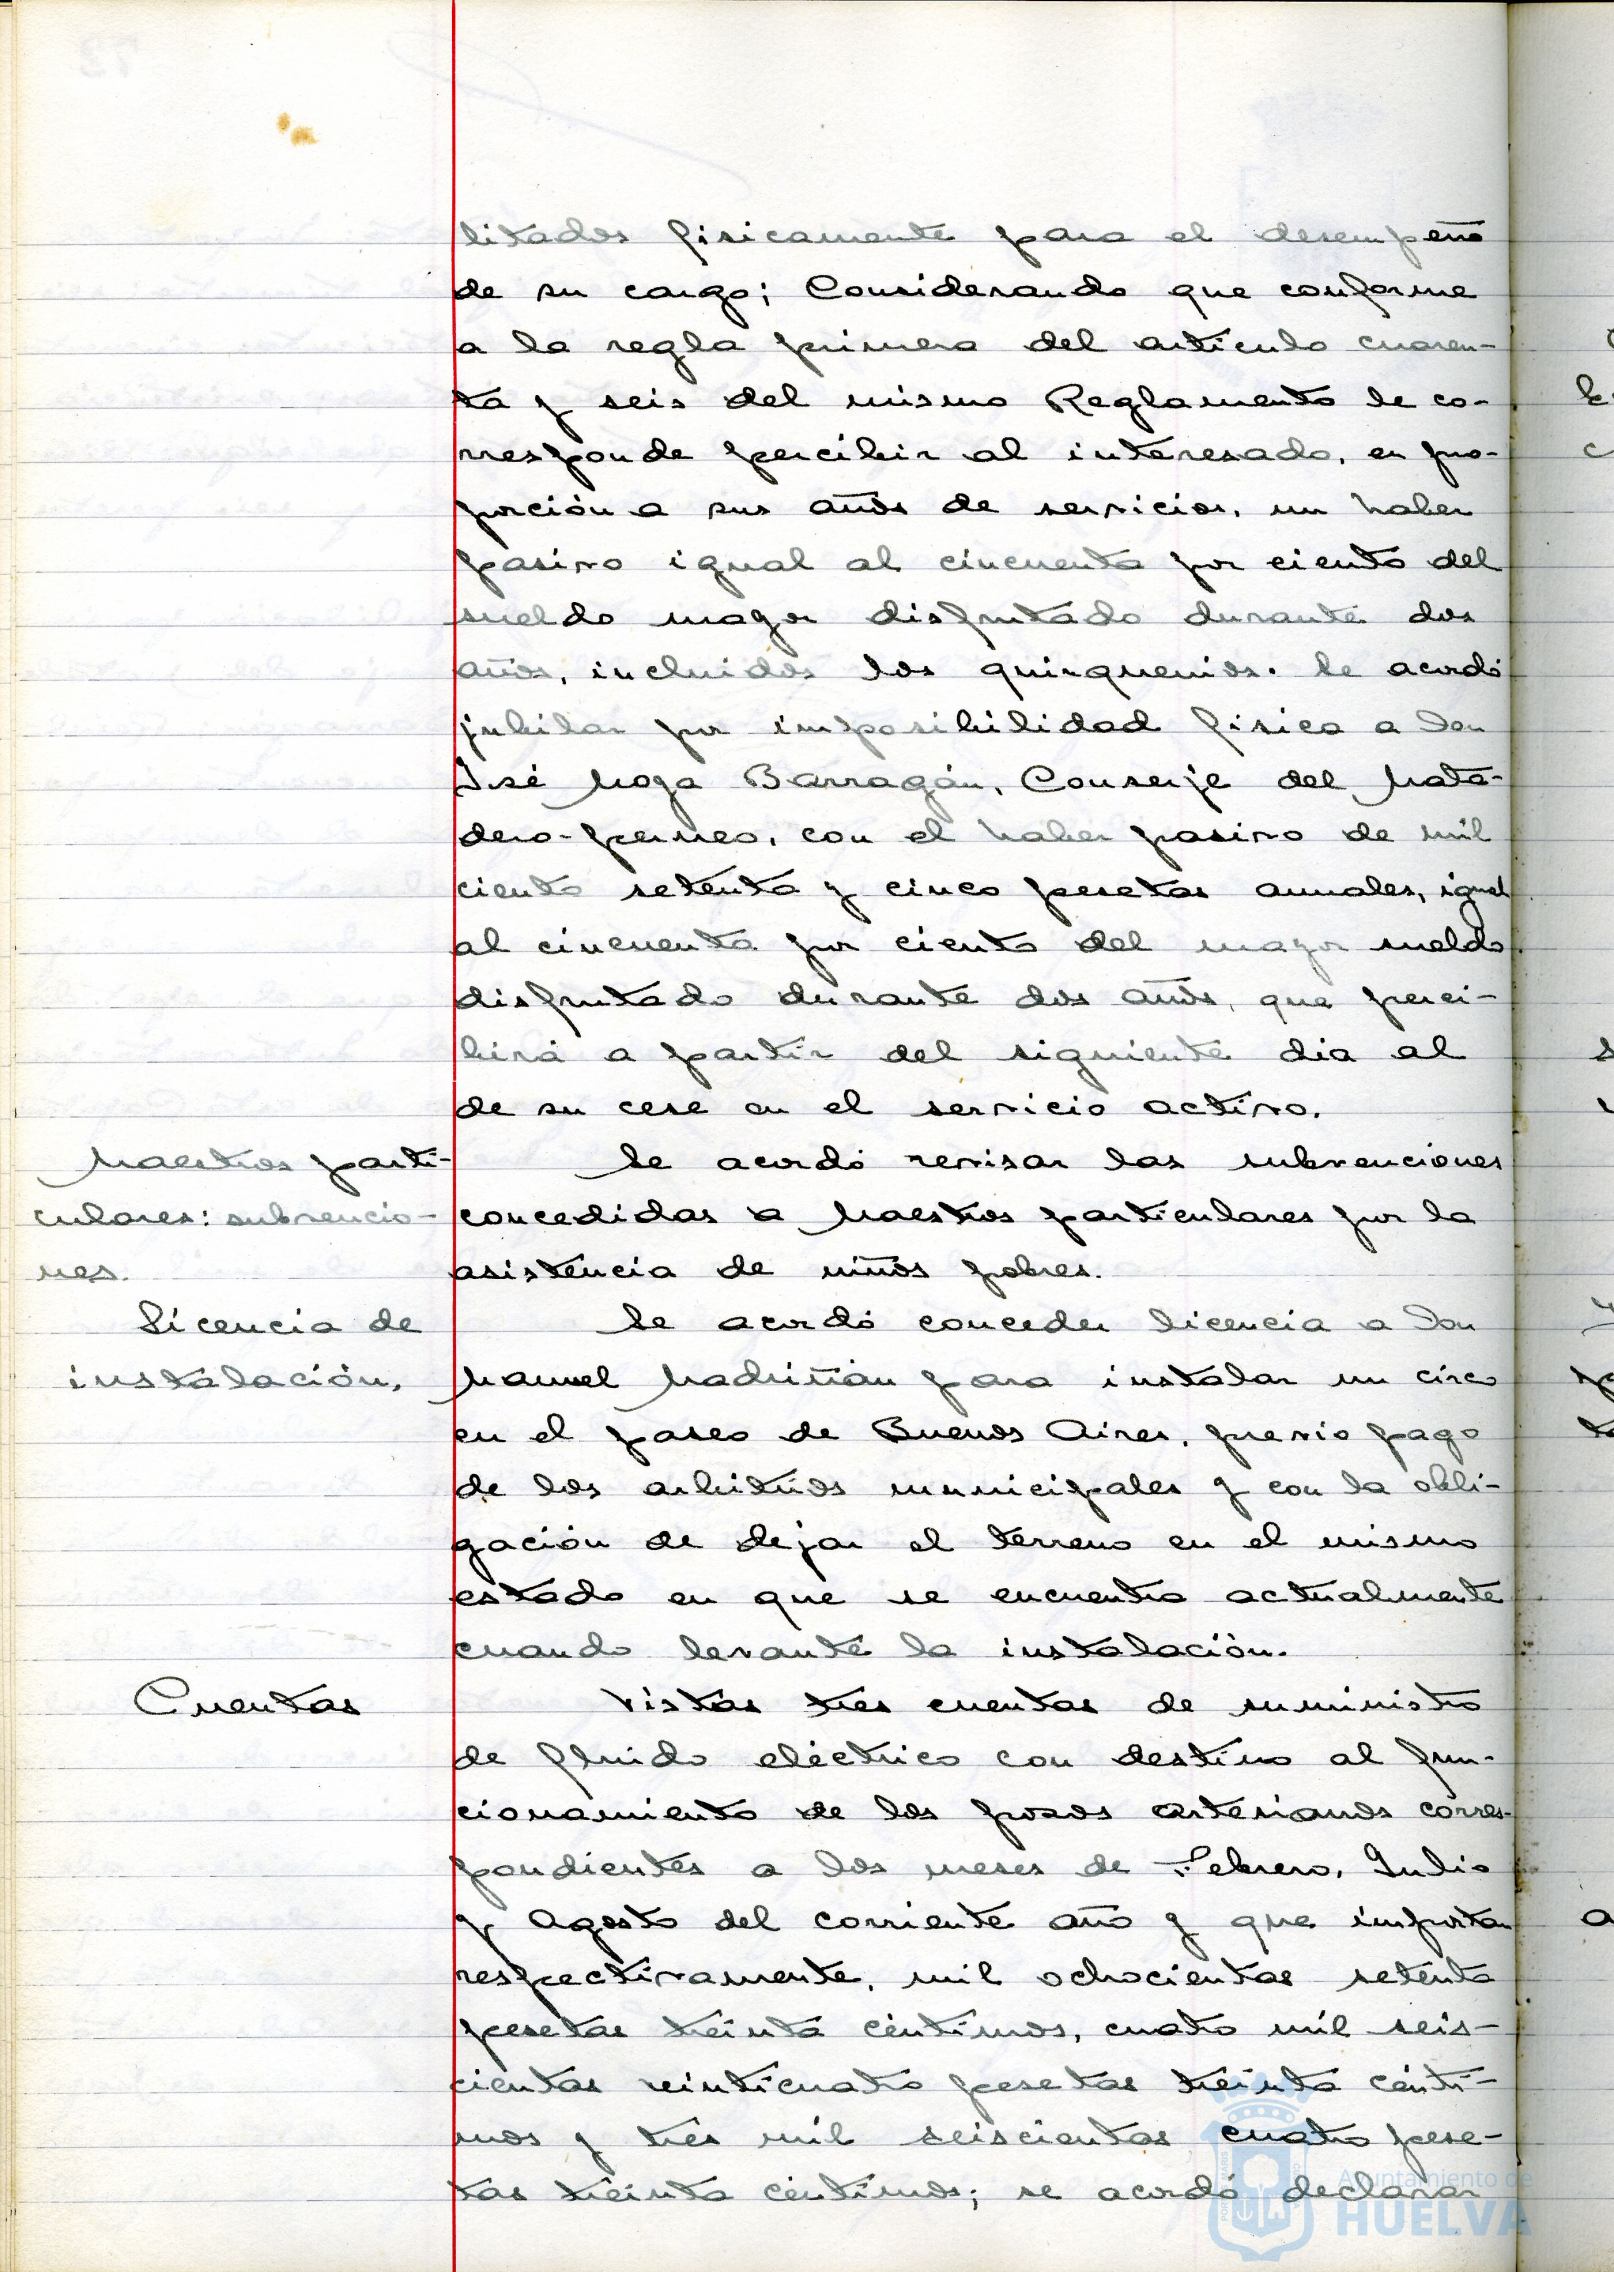 litados fisicamente para el desempeño
de su cargo; Considerando que conforme
a la regla primera del articulo cuaren-
ta y seis del mismo Reglamento le co-
rresponde percibir al interesado, en pro-
porción a sus años de servicios, un haber
pasivo igual al cincuenta por ciento del
sueldo mayor disfrutado durante dos
años, incluidos los quinquenios. Se acordó
jubilar por imposibilidad fisica a Don
José Moya Barragán, Conserje del Mata-
dero-perreo, con el haber pasivo de mil
ciento setenta y cinco pesetas anuales, igual
al cincuenta por ciento del mayor sueldo
disfrutado durante dos años, que perci-
birá a partir del siguiente dia al
de su cese en el servicio activo.
Maestros parti-
culares: subvencio-
nes.
Se acordó revisar las subvenciones
concedidas a Maestros particulares por la
asistencia de niños pobres.
Licencia de
instalación.
Se acordó conceder licencia a Don
Manuel Madriñán para instalar un circo
en el paseo de Buenos Aires, previo pago
de los arbitrios municipales y con la obli-
gación de dejar el terreno en el mismo
estado en que se encuentra actualmente
cuando levante la instalación.
Cuentas
Vistas tres cuentas de suministro
de fluido eléctrico con destino al fun-
cionamiento de los pozos artesianos corres-
pondientes a los meses de Febrero, Julio
y Agosto del corriente año y que importan
respectivamente, mil ochocientas setenta
pesetas treinta céntimos, cuatro mil seis-
cientas veinticuatro pesetas treinta cénti-
mos y tres mil seiscientas cuatro pese-
tas treinta céntimos; se acordó declarar
Ayuntamiento de
HUELVA